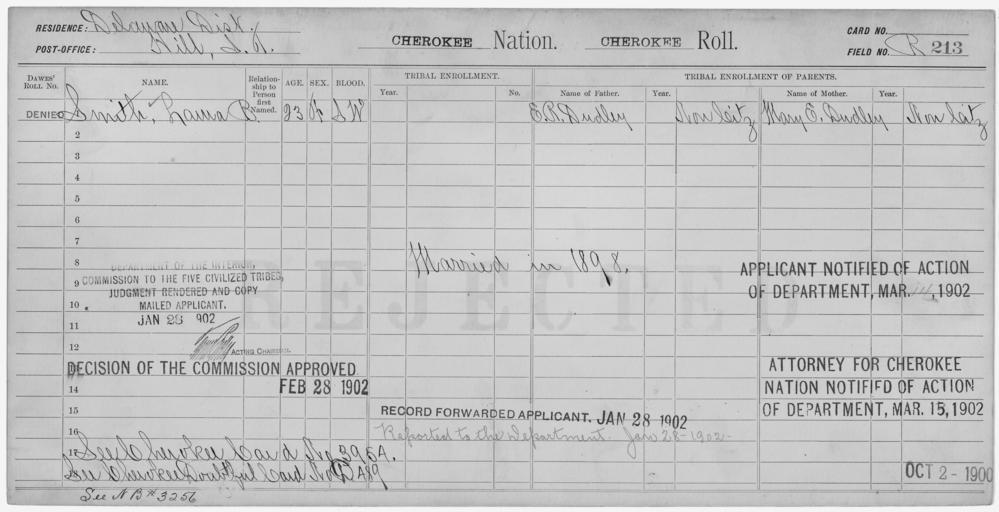 RESIDENCE: Delaware Dist.
POST-OFFICE: Hill, I.T.
CHEROKEE Nation. CHEROKEE Roll.
CARD NO.
FIELD NO. R 213
DAWES' ROLL NO. NAME. Relationship to Person first Named. AGE. SEX. BLOOD. TRIBAL ENROLLMENT. Year. No. TRIBAL ENROLLMENT OF PARENTS. Name of Father. Year. Name of Mother. Year.
DENIED Smith, Laura B. 23 F I W E.R. Dudley Non Citz Mary E. Dudley Non Citz
2
3
4
5
6
7
8 DEPARTMENT OF THE INTERIOR,
9 COMMISSION TO THE FIVE CIVILIZED TRIBES,
JUDGMENT RENDERED AND COPY
10 MAILED APPLICANT.
JAN 28 902
11
12 ACTING CHAIRMAN.
Married in 1898.
REJECTED
APPLICANT NOTIFIED OF ACTION
OF DEPARTMENT, MAR. 1902
DECISION OF THE COMMISSION APPROVED
FEB 28 1902
14
ATTORNEY FOR CHEROKEE
NATION NOTIFIED OF ACTION
OF DEPARTMENT, MAR. 15, 1902
15
RECORD FORWARDED APPLICANT. JAN 28 1902
16 Reported to the Department. Jan 28-1902-
See Cherokee Card No 3964.
See Cherokee Doubtful Card No D 489
OCT 2 - 1900
See N B # 3256